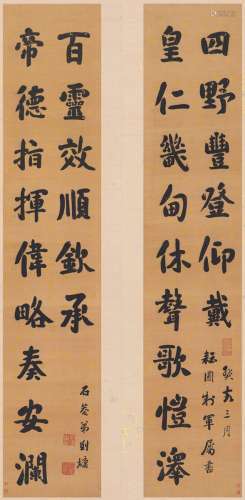 四野豐登仰戴
皇仁畿甸休聲歌愷澤
癸亥三月
耘圃制軍屬書
百靈效順欽承
帝德指揮偉略奏安瀾
石菴弟劉墉